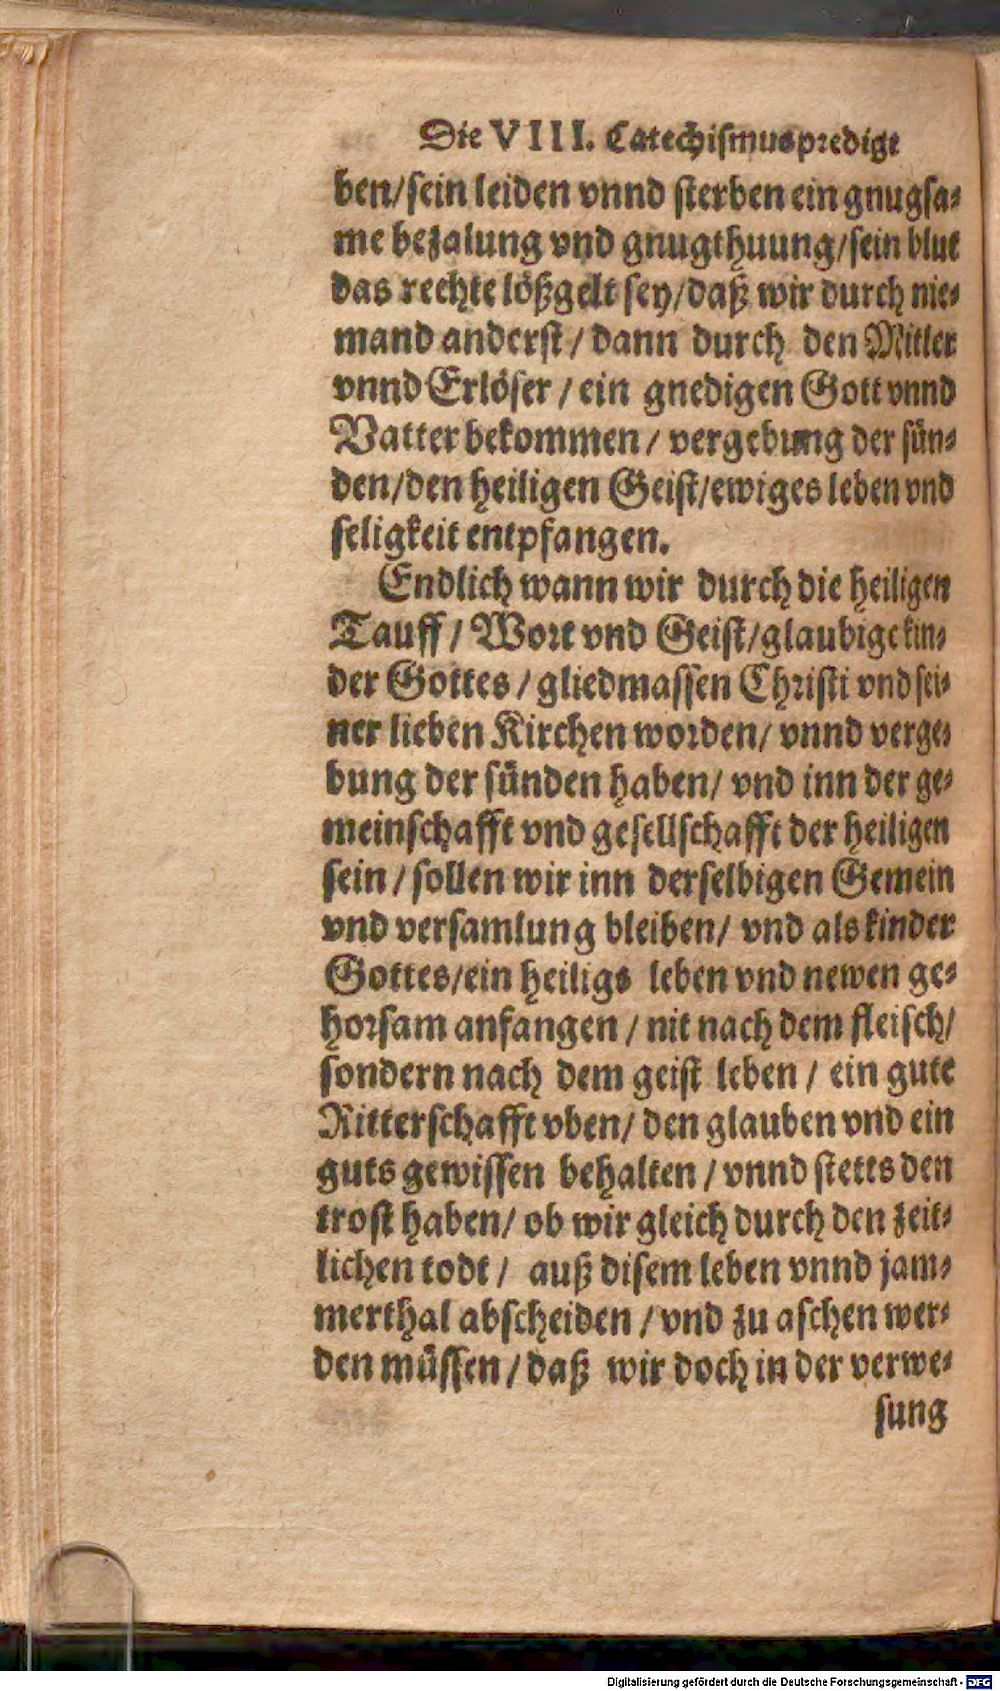 Die VIII. Catechismuspredigt
ben/sein leiden vnnd sterben ein gnugsa⸗
me bezalung vnd gnugthuung/sein blut
das rechte lößgelt sey/daß wir durch nie⸗
mand anderst/ dann durch den Mitler
vnnd Erlöser / ein gnedigen Gott vnnd
Vatter bekommen/ vergebung der sün⸗
den/den heiligen Geist/ewiges leben vnd
seligkeit entpfangen.
Endlich wann wir durch die heiligen
Tauff/ Wort vnd Geist/glaubige kin⸗
der Gottes / gliedmassen Christi vnd sei⸗
ner lieben Kirchen worden/ vnnd verge⸗
bung der sünden haben/ vnd inn der ge⸗
meinschafft vnd gesellschafft der heiligen
sein / sollen wir inn derselbigen Gemein
vnd versamlung bleiben/ vnd als kinder
Gottes/ein heiligs leben vnd newen ge⸗
horsam anfangen / nit nach dem fleisch/
sondern nach dem geist leben / ein gute
Ritterschafft vben/ den glauben vnd ein
guts gewissen behalten / vnnd stetts den
trost haben/ ob wir gleich durch den zeit⸗
lichen todt / auß disem leben vnnd jam⸗
merthal abscheiden / vnd zu aschen wer⸗
den müssen / daß wir doch in der verwe⸗
sung
Digitalisierung gefördert durch die Deutsche Forschungsgemeinschaft - DFG